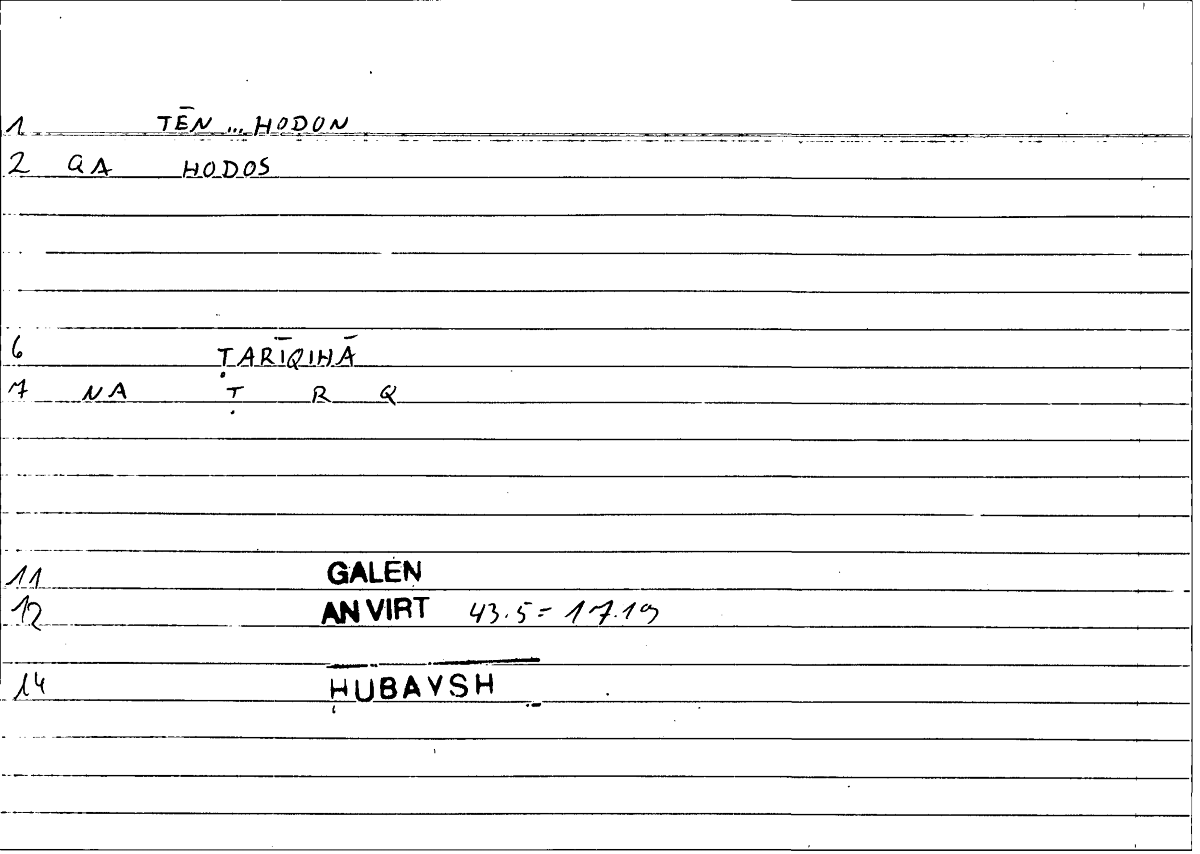 1 TĒN ... HODON
2 QA HODOS
6 ṬARĪQIHĀ
7 NA Ṭ R Q
11 GALEN
12 AN VIRT 43.5 = 17.19
14 ḤUBAYSH